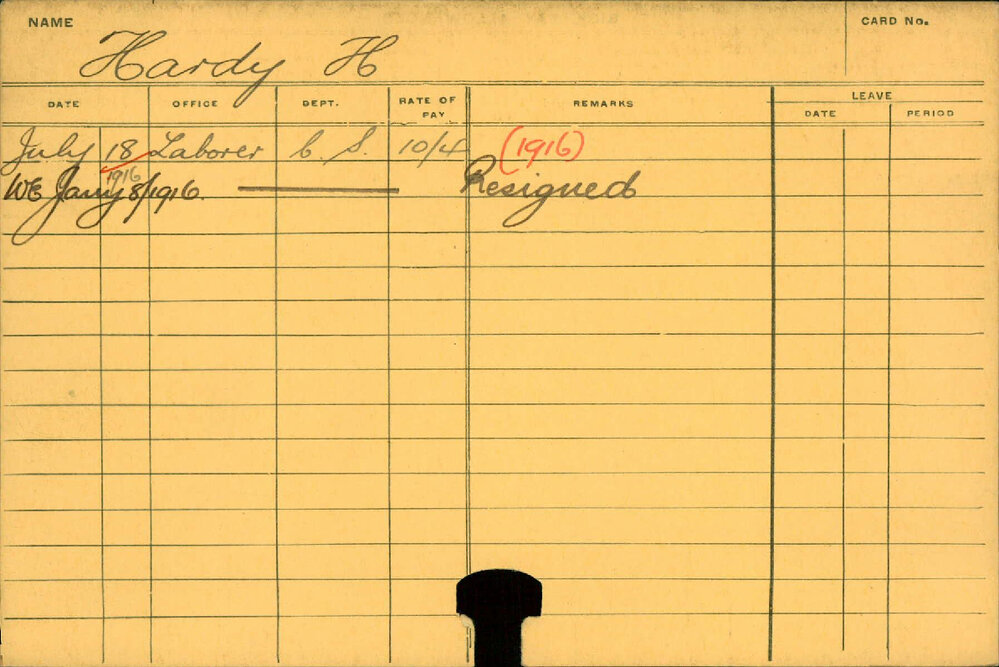 NAME
CARD No.
Hardy H
DATE OFFICE DEPT. RATE OF PAY REMARKS LEAVE
DATE PERIOD
July 18 Laborer C. S. 10/4 (1916)
1916
WE Jany 8/1916. Resigned